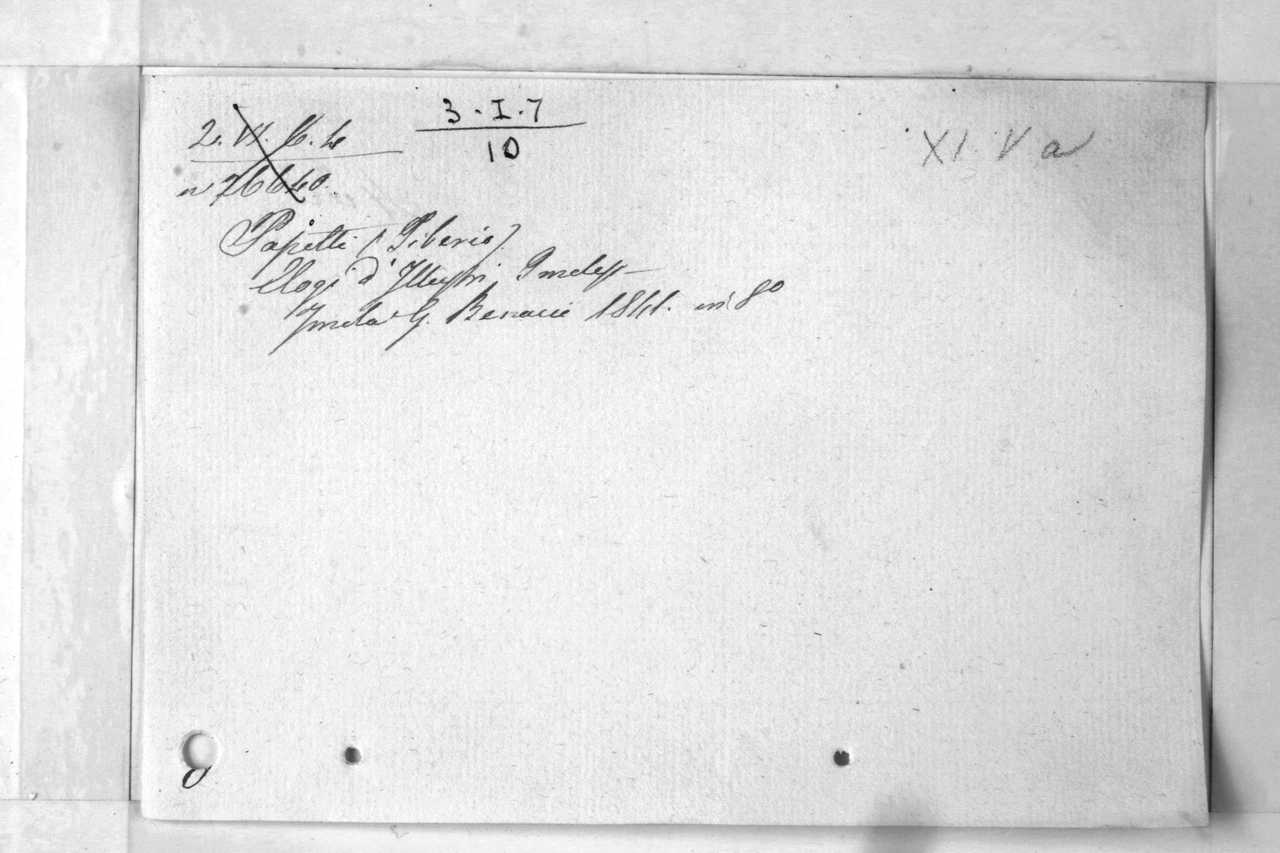 3-I-7
10
XI. V a
Papotti (Tiberio)
Elogi d'Illustri Imolesi
Imola G. Benacci 1841. in 8º